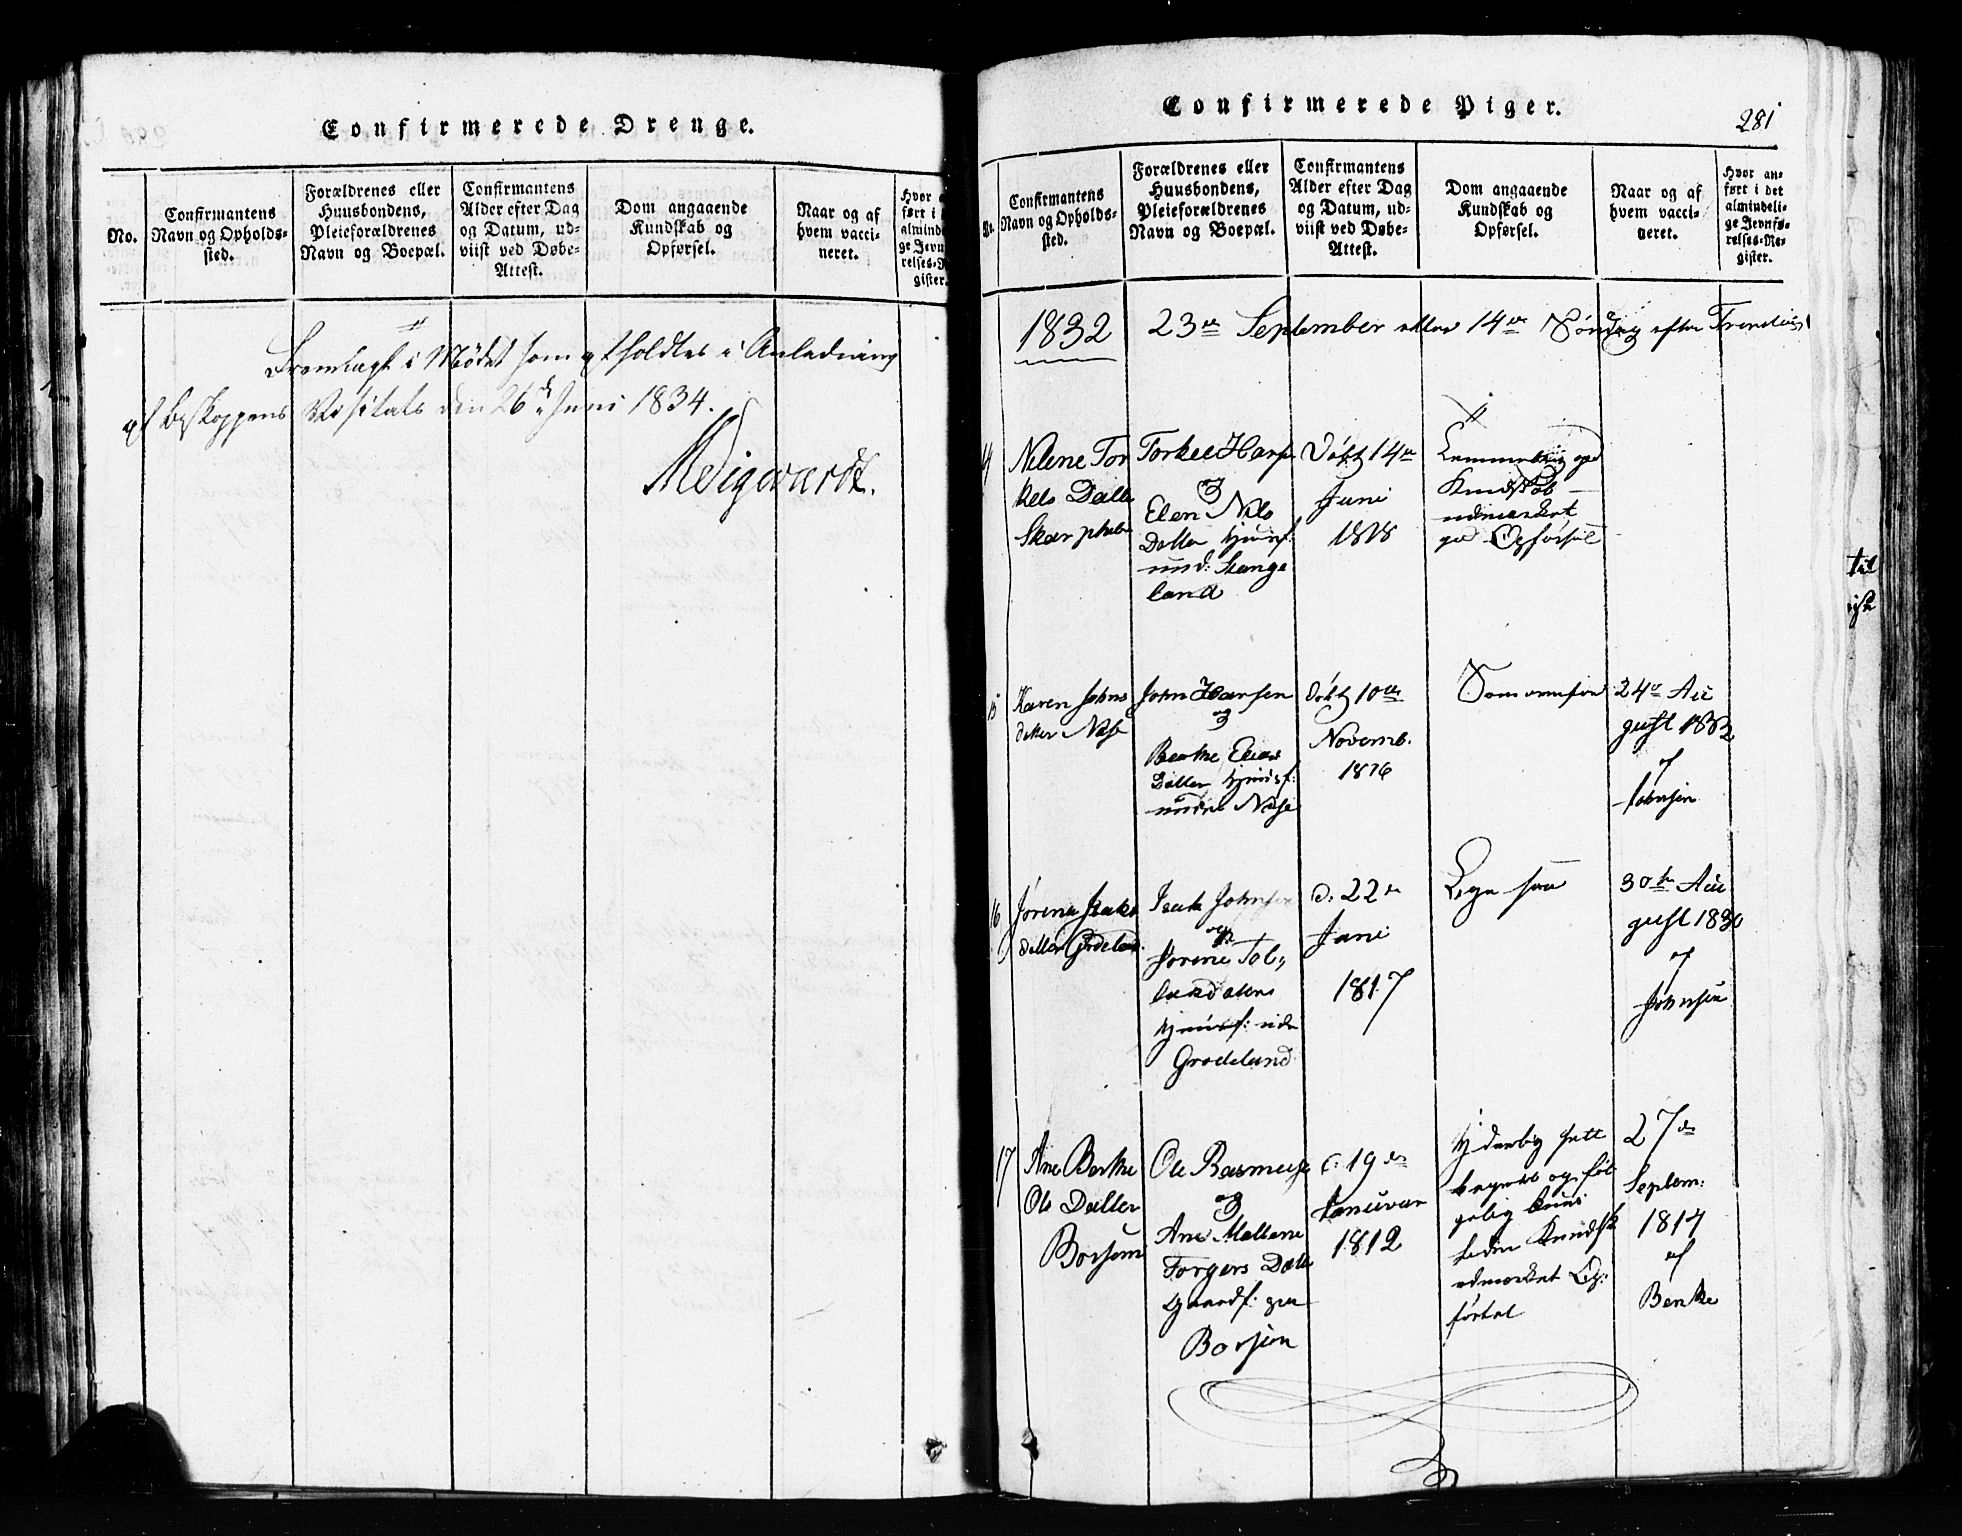 Confirmerede Drenge.
No.
Confirmantens
Navn og Opholds-
sted.
Forældrenes eller
Huusbondens,
Pleieforældrenes
Navn og Boepæl.
Confirmantens
Alder efter Dag
og Datum, ud-
viist ved Døbe-
Attest.
Dom angaaende
Kundskab og
Opførsel.
Naar og af
hvem vacci-
neret.
Hvor
ført i
almind
ge Jevn
relses-R
gister.
Fremlagt i Mødet som afholdtes i Anledning
af Biskoppens Visitats den 26 de Juni 1834.
Confirmerede Piger.
281
No.
Confirmantens
Navn og Opholds-
sted.
Forældrenes eller
Huusbondens,
Pleieforældrenes
Navn og Boepæl.
Confirmantens
Alder efter Dag
og Datum, ud-
viist ved Døbe-
Attest.
Dom angaaende
Kundskab og
Opførsel.
Naar og af
hvem vacci-
neret.
Hvor an-
ført i det
almindeli-
ge Jevnfø-
relses-Re-
gister.
1832 23de September eller 14de Søndag efter
14
Nilene Tor
kels Datter
Torkel Hans
og
Elen Nils
Datter Huusf:
und: Stange
land
Døbt 14de
Juni
1818
god
Kundskab
udmærket
god Opførsel
15
Karen Johns
datter Næse
John Hansen
og
Berthe Elias
Datter Huusf:
under Næse
Døbt 10de
Novemb.
1816
Som ovenfor
24de Au
gust 1832
af
Johnsen
16
Jørene Isaks
datter Grødeland
Isak Johnsen
og
Jørene
Huusf: und
Grødeland
d: 22de
Juni
1817
Lige saa
30te Au
gust 1830
af
Johnsen
17
Ane Berthe
Ols Datter
Borsem
Ole Rasmus
og
Ane Malene
Torgers Datter
Gaardf: paa
Borsem
d: 19de
Januvar
1812
og føl
gelig
Kundsk
udmærket Op:
førsel
27de
Septem:
1814
af
Benke
til